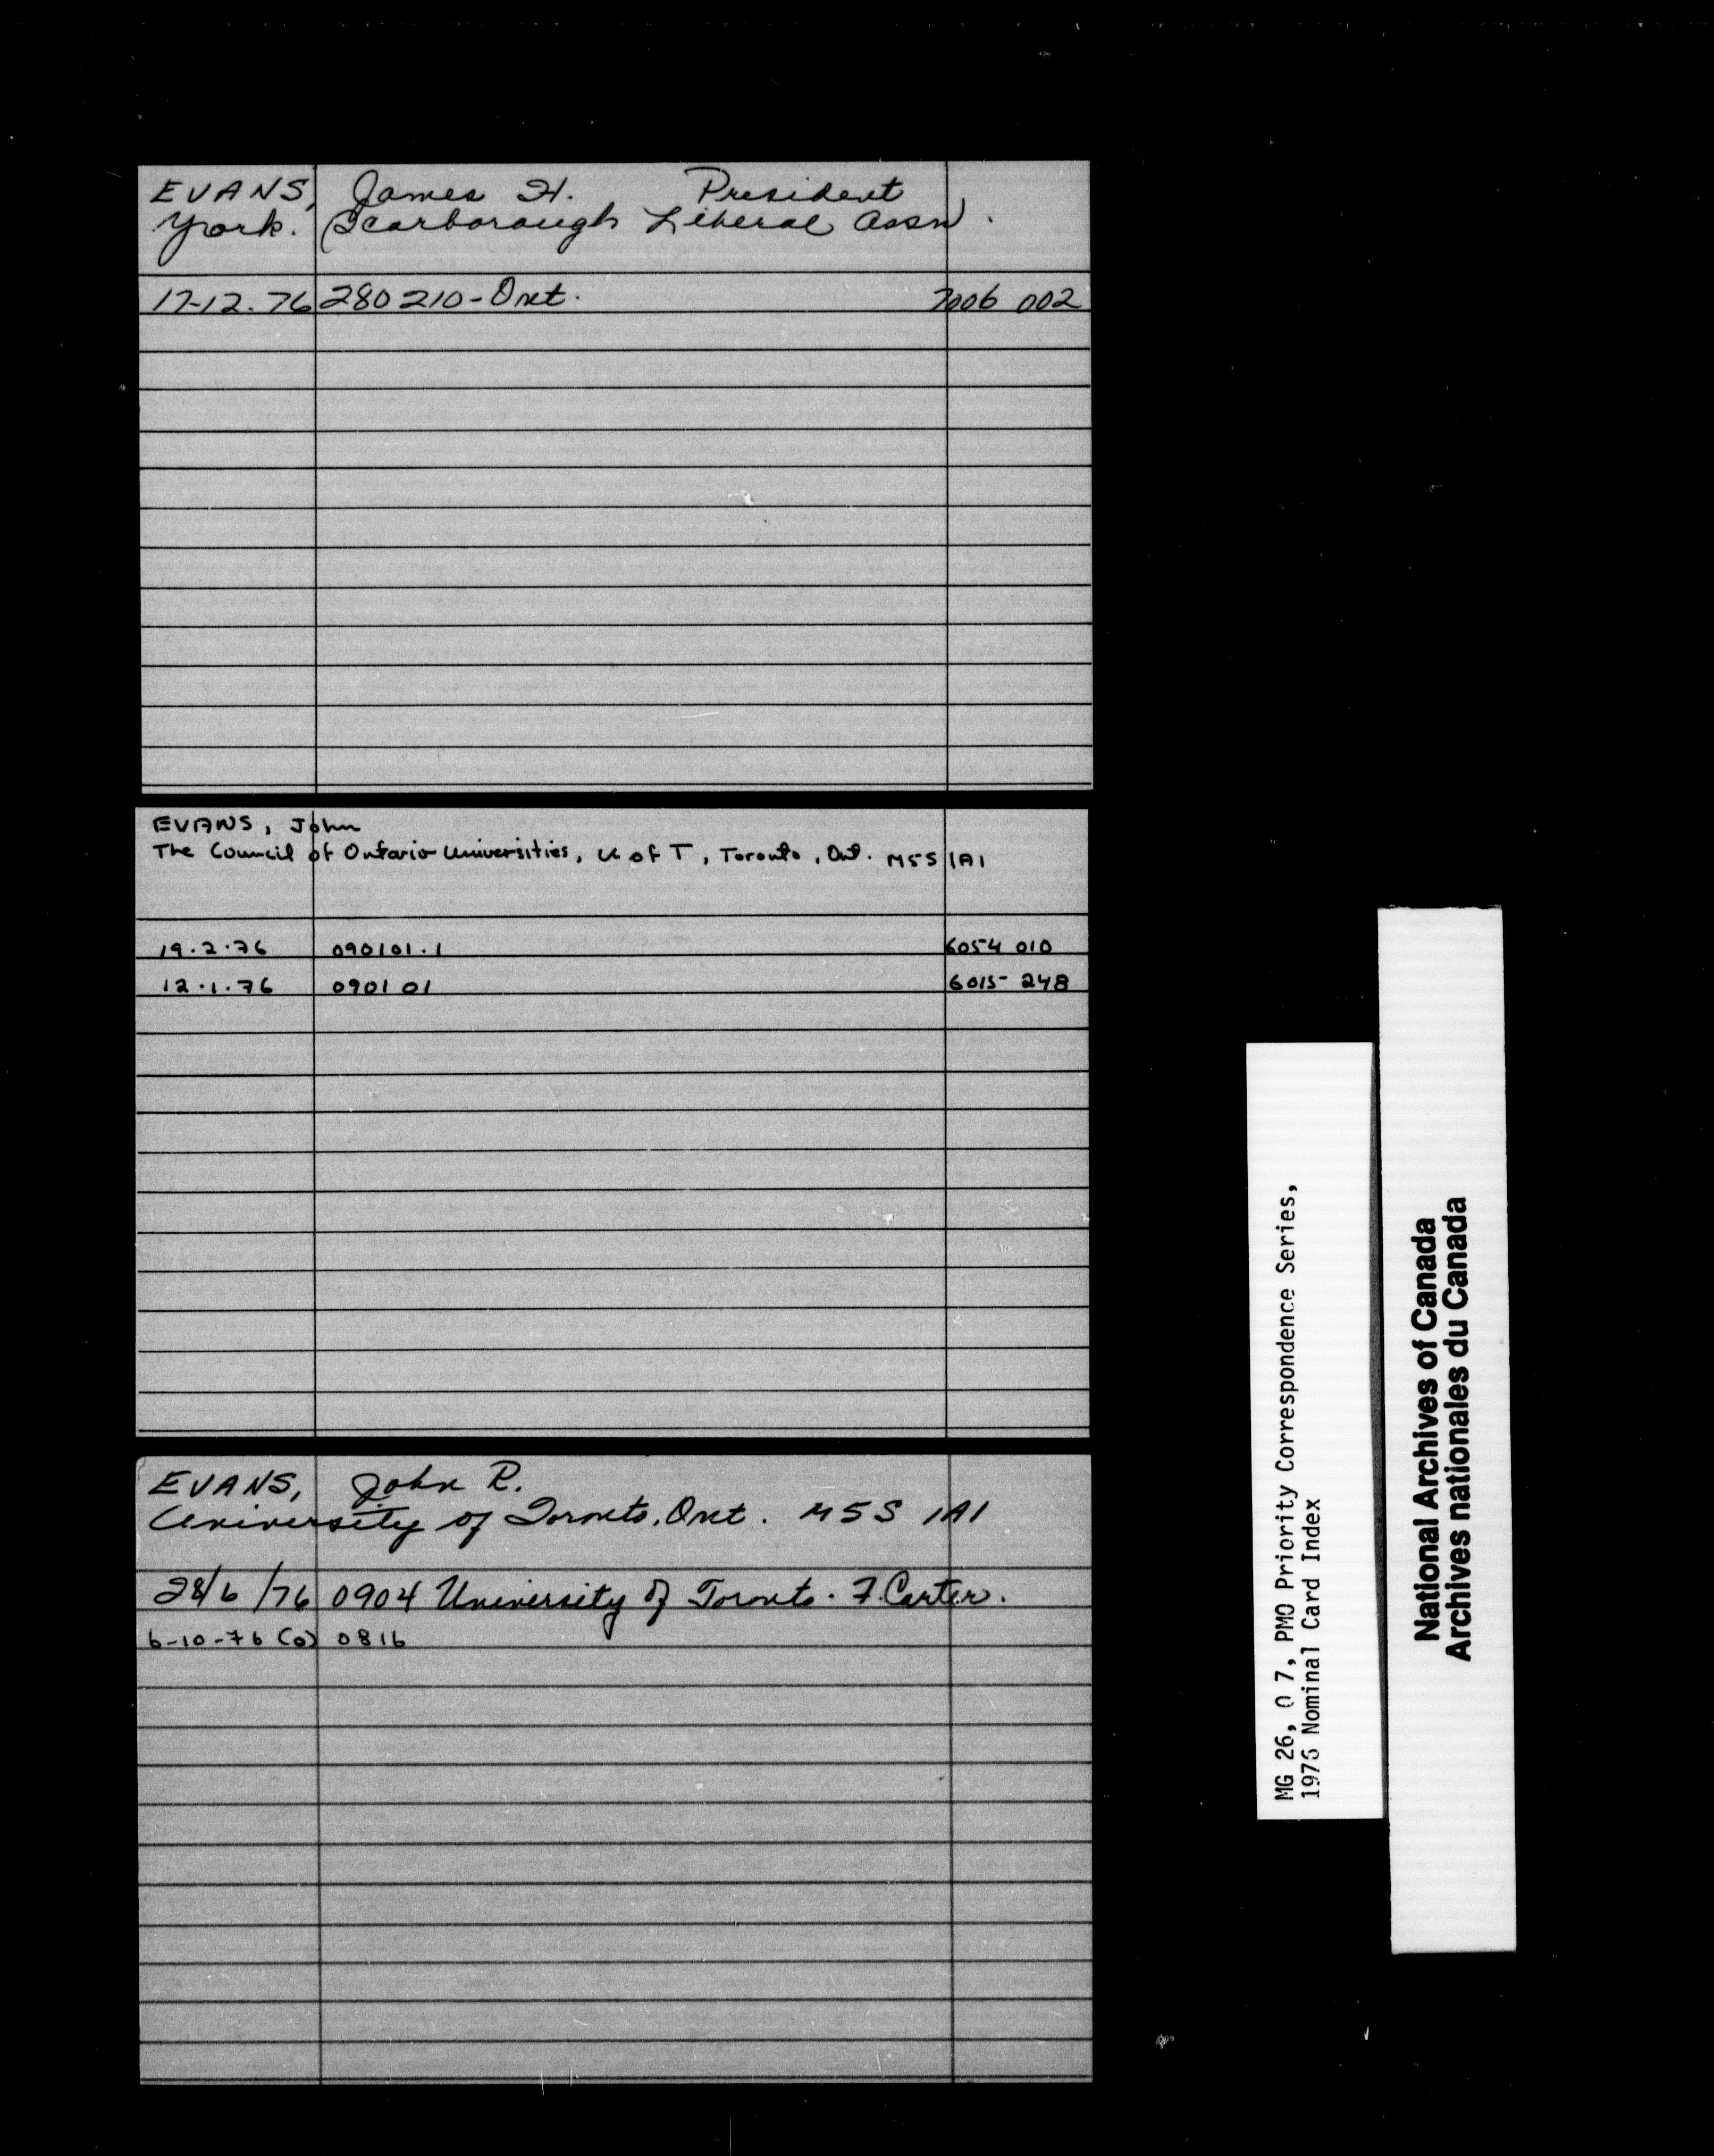 EVANS, James H. President
York. (Scarborough Liberal Assn).
17-12.76 280210-Ont. 7006 002
EVANS, John
The Council of Ontario Universities, U of T, Toronto, Ont. M5S 1A1
19.2.76 090101.1 6054 010
12.1.76 090101 6015-248
EVANS, John R.
University of Toronto, Ont. M5S 1A1
28/6/76 0904 University of Toronto. F. Carter.
6-10-76 (o) 0816
MG 26, O 7, PMO Priority Correspondence Series,
1976 Nominal Card Index
National Archives of Canada
Archives nationales du Canada